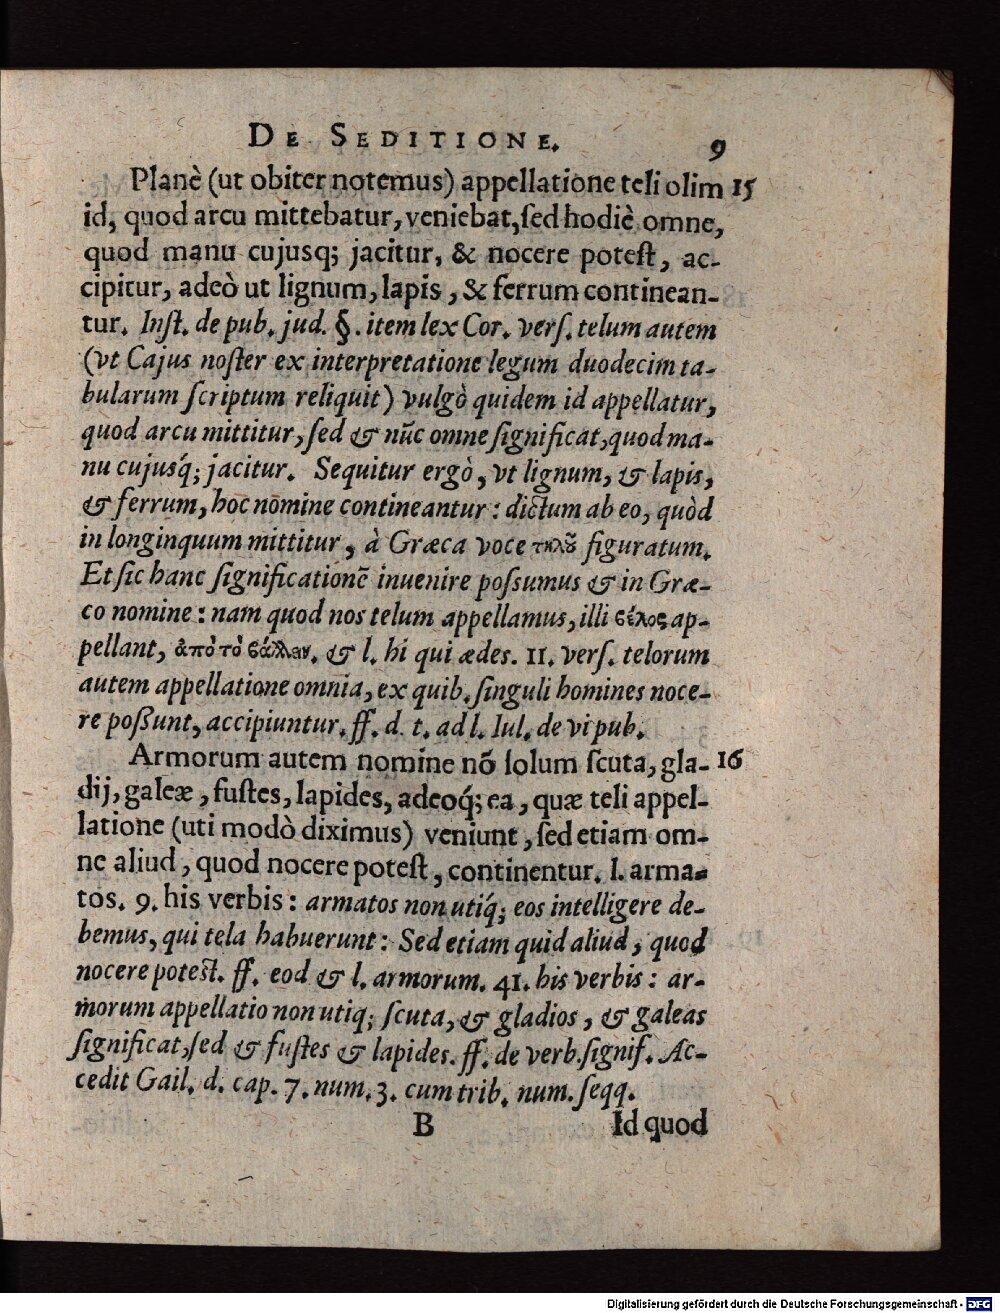 DE SEDITIONE. 9
Planè (ut obiter notemus) appellatione teli olim 15
id, quod arcu mittebatur, veniebat, sed hodiè omne,
quod manu cujusq; jacitur, & nocere potest, ac-
cipitur, adeò ut lignum, lapis, & ferrum continean-
tur. Inst. de pub. jud. §. item lex Cor. vers. telum autem
(vt Cajus noster ex interpretatione legum duodecim ta-
bularum scriptum reliquit) vulgò quidem id appellatur,
quod arcu mittitur, sed & nūc omne significat, quod ma-
nu cujusq́; jacitur. Sequitur ergò, vt lignum, & lapis,
& ferrum, hoc nomine contineantur: dictum ab eo, quòd
in longinquum mittitur, à Græca voce τηλοῦ figuratum.
Et sic hanc significationē inuenire possumus & in Græ-
co nomine: nam quod nos telum appellamus, illi βέλος ap-
pellant, ἀπὸ τὸ βάλλειν. & l. hi qui ædes. 11. vers. telorum
autem appellatione omnia, ex quib. singuli homines noce-
re poßunt, accipiuntur. ff. d. t. ad l. Iul. de vi pub.
Armorum autem nomine nō solum scuta, gla- 16
dij, galeæ, fustes, lapides, adeoq́; ea, quæ teli appel-
latione (uti modò diximus) veniunt, sed etiam om-
ne aliud, quod nocere potest, continentur. l. arma-
tos. 9. his verbis: armatos non utiq́; eos intelligere de-
bemus, qui tela habuerunt: Sed etiam quid aliud, quod
nocere potest. ff. eod & l. armorum. 41. his verbis: ar-
morum appellatio non utiq; scuta, & gladios, & galeas
significat, sed & fustes & lapides. ff. de verb. signif. Ac-
cedit Gail. d. cap. 7. num. 3. cum trib. num. seqq.
B Id quod
Digitalisierung gefördert durch die Deutsche Forschungsgemeinschaft - DFG